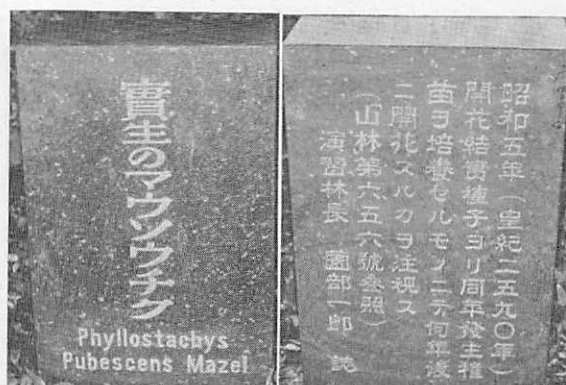 實生のマウソウチク
Phyllostachys
Pubescens Mazei
昭和五年(皇紀二五九〇年)
開花結實種子ヨリ同年發生稚
苗ヲ培養セルモノニテ何年後
ニ開花スルカヲ注視ス
(山林第六五六號參照)
演習林長 薗部一郎 誌